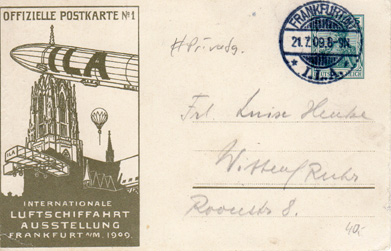 OFFIZIELLE POSTKARTE No 1
ILA
ILA
INTERNATIONALE
LUFTSCHIFFAHRT
AUSSTELLUNG
FRANKFURT A/M. 1909.
FRANKFURT
21.7.09.8-9N.
* I.L.A. *
Frl. Luise
Witten/Ruhr
Roonstr 8.
40.-